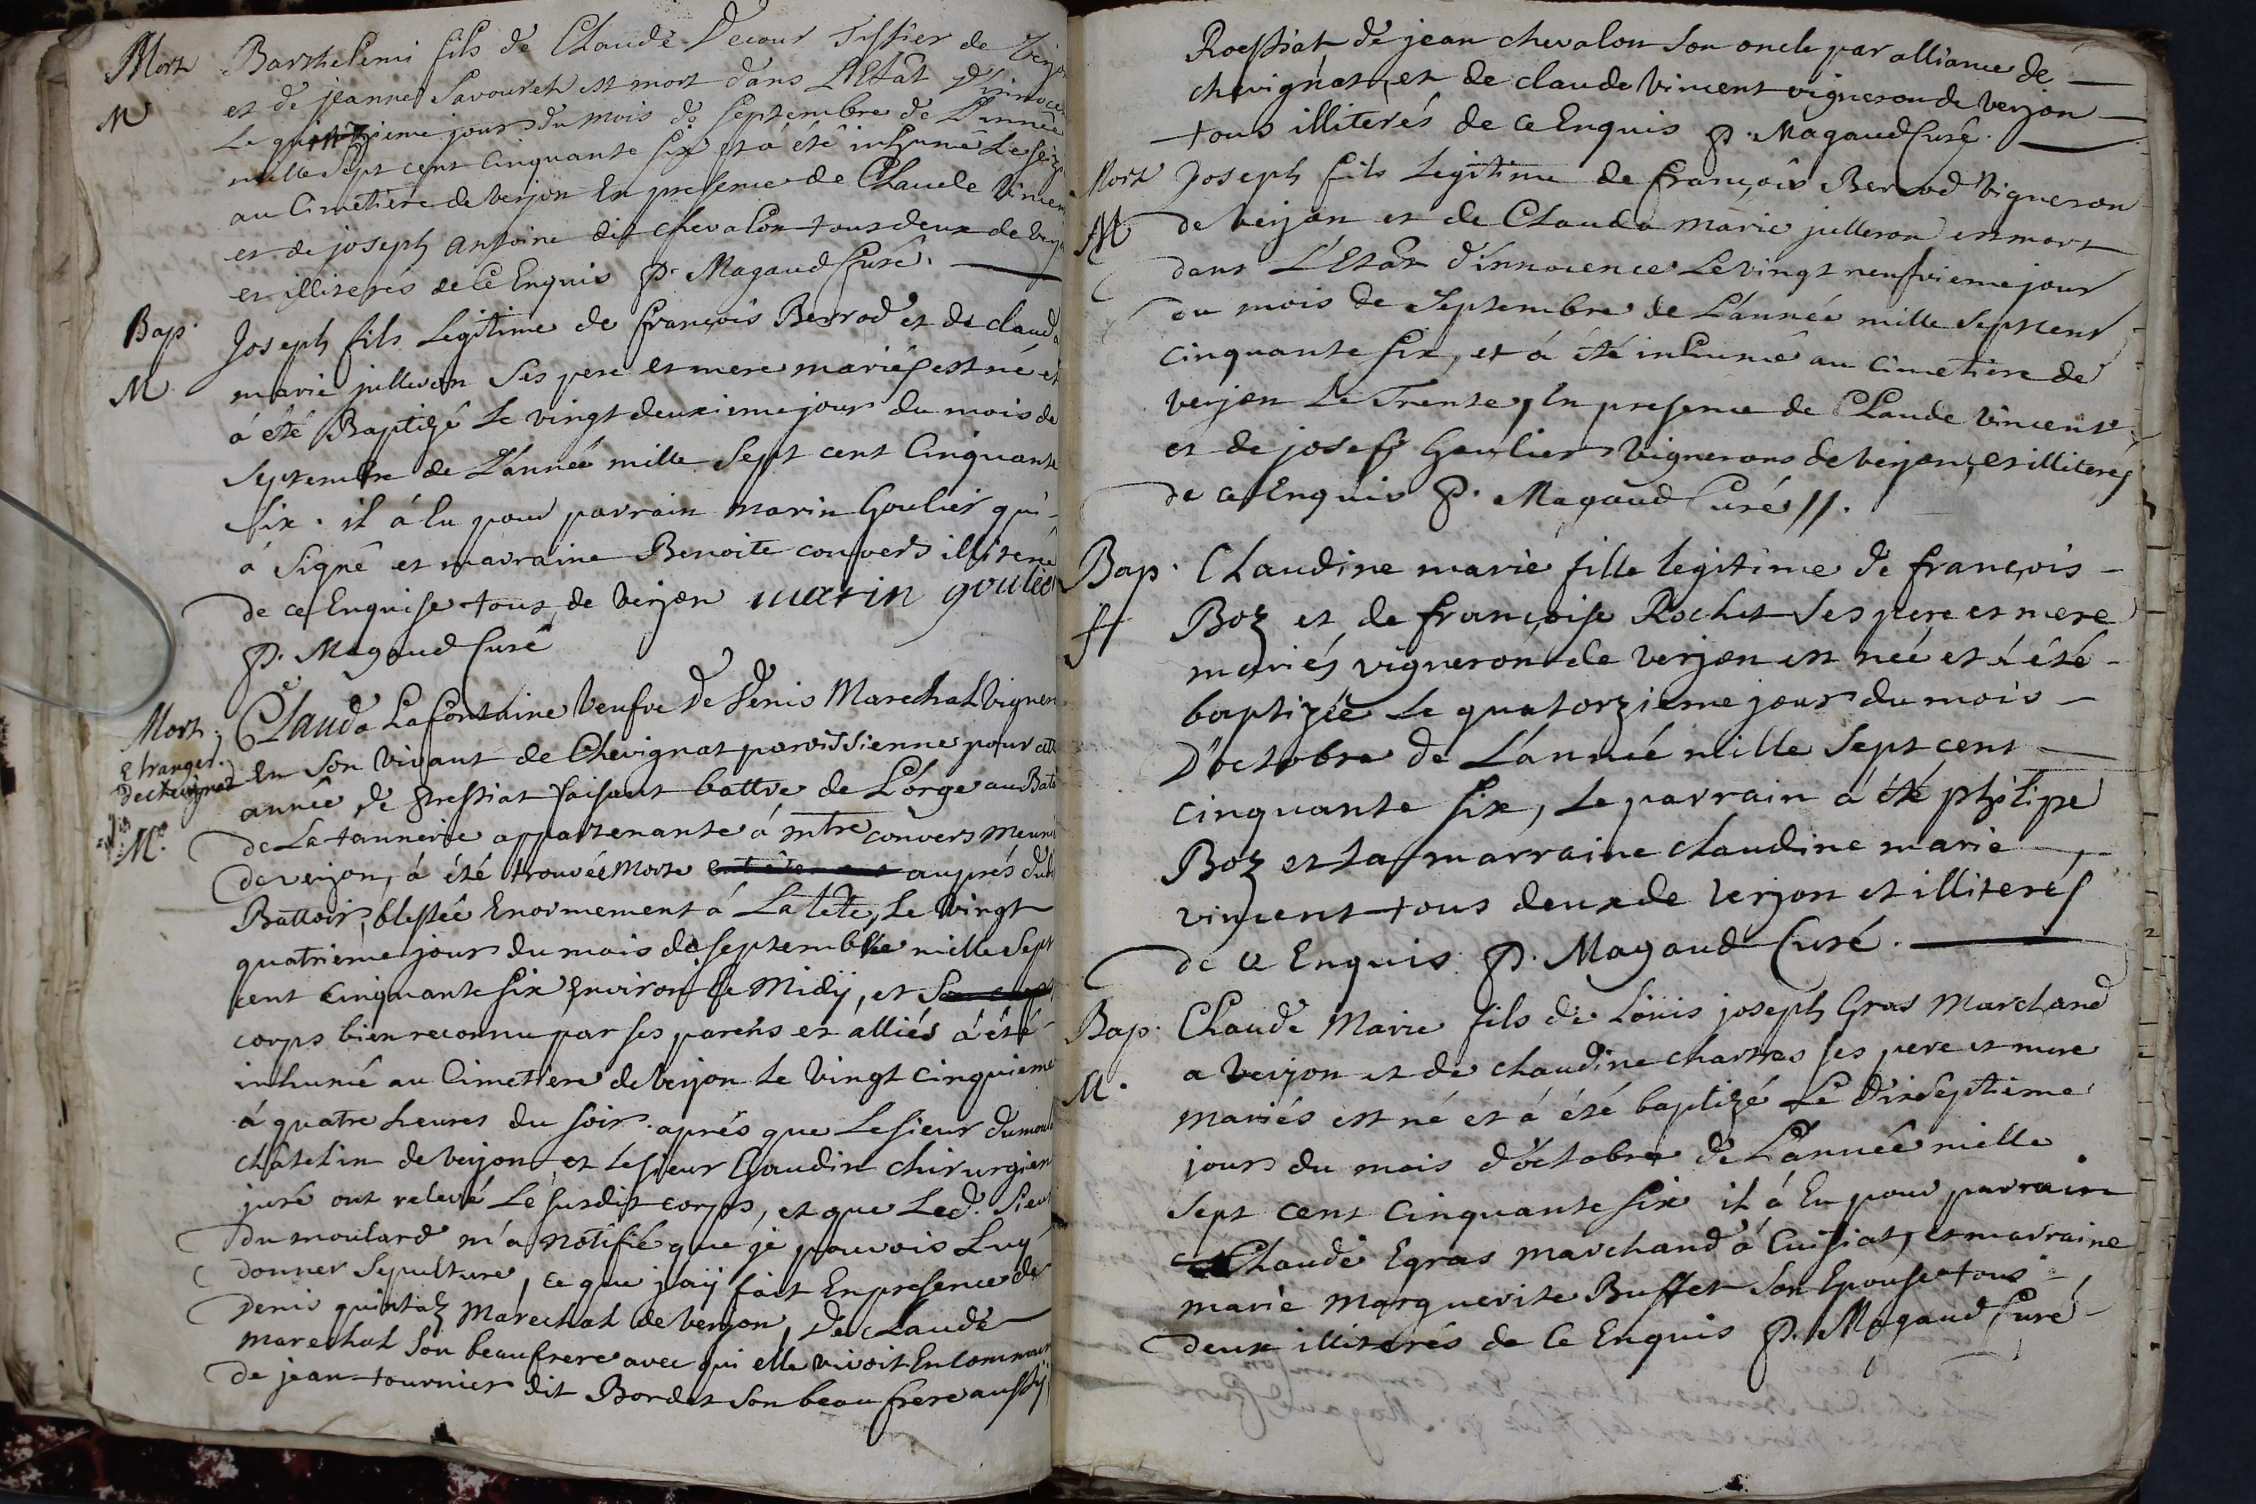 Mort
M
Barthelemi fils de Claude Decour Tissier de Verjon
et de jeanne Savouret est mort dans L'Etat d'innocen
Le quinzieme jour du mois de septembre de L'année
mille sept cent cinquante six et a été inhumé Le seiz
au Cimetiere de verjon En presence de Claude Vincen
et de joseph antoine dit chevalon tous deux de verjo
et illiterés de ce Enquis P. Magaud Curé.
Bap.
M
Joseph fils Legitime de françois Berrod et de clauda
marie julleron ses pere et mere mariés est né et
à été Baptizé Le vingt deuxieme jour du mois de
septembre de L'année mille sept cent Cinquante
six. il á Eu pour parrain marin Goulier qui
á signé et marraine Benoite convers illiteré
de ce Enquise tous de verjon marin goulier
P. Magaud Curé
Mort.
Etranger.
de chevignat
M.
Clauda Lafontaine Veufve de Denis Marechal Vigner
En son vivant de Chevignat paroissienne pour cette
année de Pressiat faisant battre de L'orge au Bato
de La tannerie appartenante á mtre convers Meuni
de verjon, á été trouvée morte auprés du
Battoir, blessée Enormement á La tete, Le vingt
quatrieme jour du mois de septembre mille sept
cent cinquante six Environ le Midÿ, et Son corps
corps bien reconnu par ses parens et alliés á été
inhumé au Cimetiere de verjon Le vingt cinquieme
á quatre heures du soir. aprés que Le sieur dumoul
châtelin de verjon et le sieur Gaudin chirurgien
juré ont relevé Le susdit corps, et que Led. Sieur
du moulard m'a notifié que je pouvois Luy
donner sepulture, ce que j'aÿ fait En presence de
Denis quintal Maréchal de verjon, de Claude
marechal son beaufrere avec qui elle vivoit En commun
de jean tournier dit Bordet son beau frere aussÿ
Roessiat de jean chevalon son oncle par alliance de
chevignat, et de claude vincent vigneron de verjon
tous illiterés de ce Enquis P. Magaud Curé.
Mort
M
Joseph fils Legitime de françois Berrod Vigneron
de verjon et de Clauda marie julleron est mort
dans L'Etat d'innocence Le vingt neufvieme jour
du mois de Septembre de L'année mille sept cent
cinquante six, et á été inhumé au Cimetiere de
verjon Le Trente, En presence de Claude vincent
et de josef Goulier Vignerons de verjon, et illiterés
de ce Enquis P. Magaud Curé //.
Bap.
f
Claudine marie fille legitime de françois
Boz et de françoise Rochet ses pere et mere
mariés vigneron de verjon est née et á été
baptizée Le quatorzieme jour du mois
D'octobre de L'année mille sept cent
cinquante six, Le parrain a été philipe
Boz et La marraine claudine marie
vincent tous deux de verjon et illiterés
de ce Enquis P. Magaud Curé.
Bap.
M.
Claude Marie fils de Loüis joseph Gras Marchand
a verjon et de claudine chartres ses pere et mere
mariés est né et á été baptizé Le dixseptieme
jour du mois d'octobre de L'année mille
sept cent cinquante six il á Eu pour parrain
Claude Egras marchand á Cuisiat, et marraine
marie marguerite Buffet son Epouse tous
deux illiterés de ce Enquis P. Magaud Curé